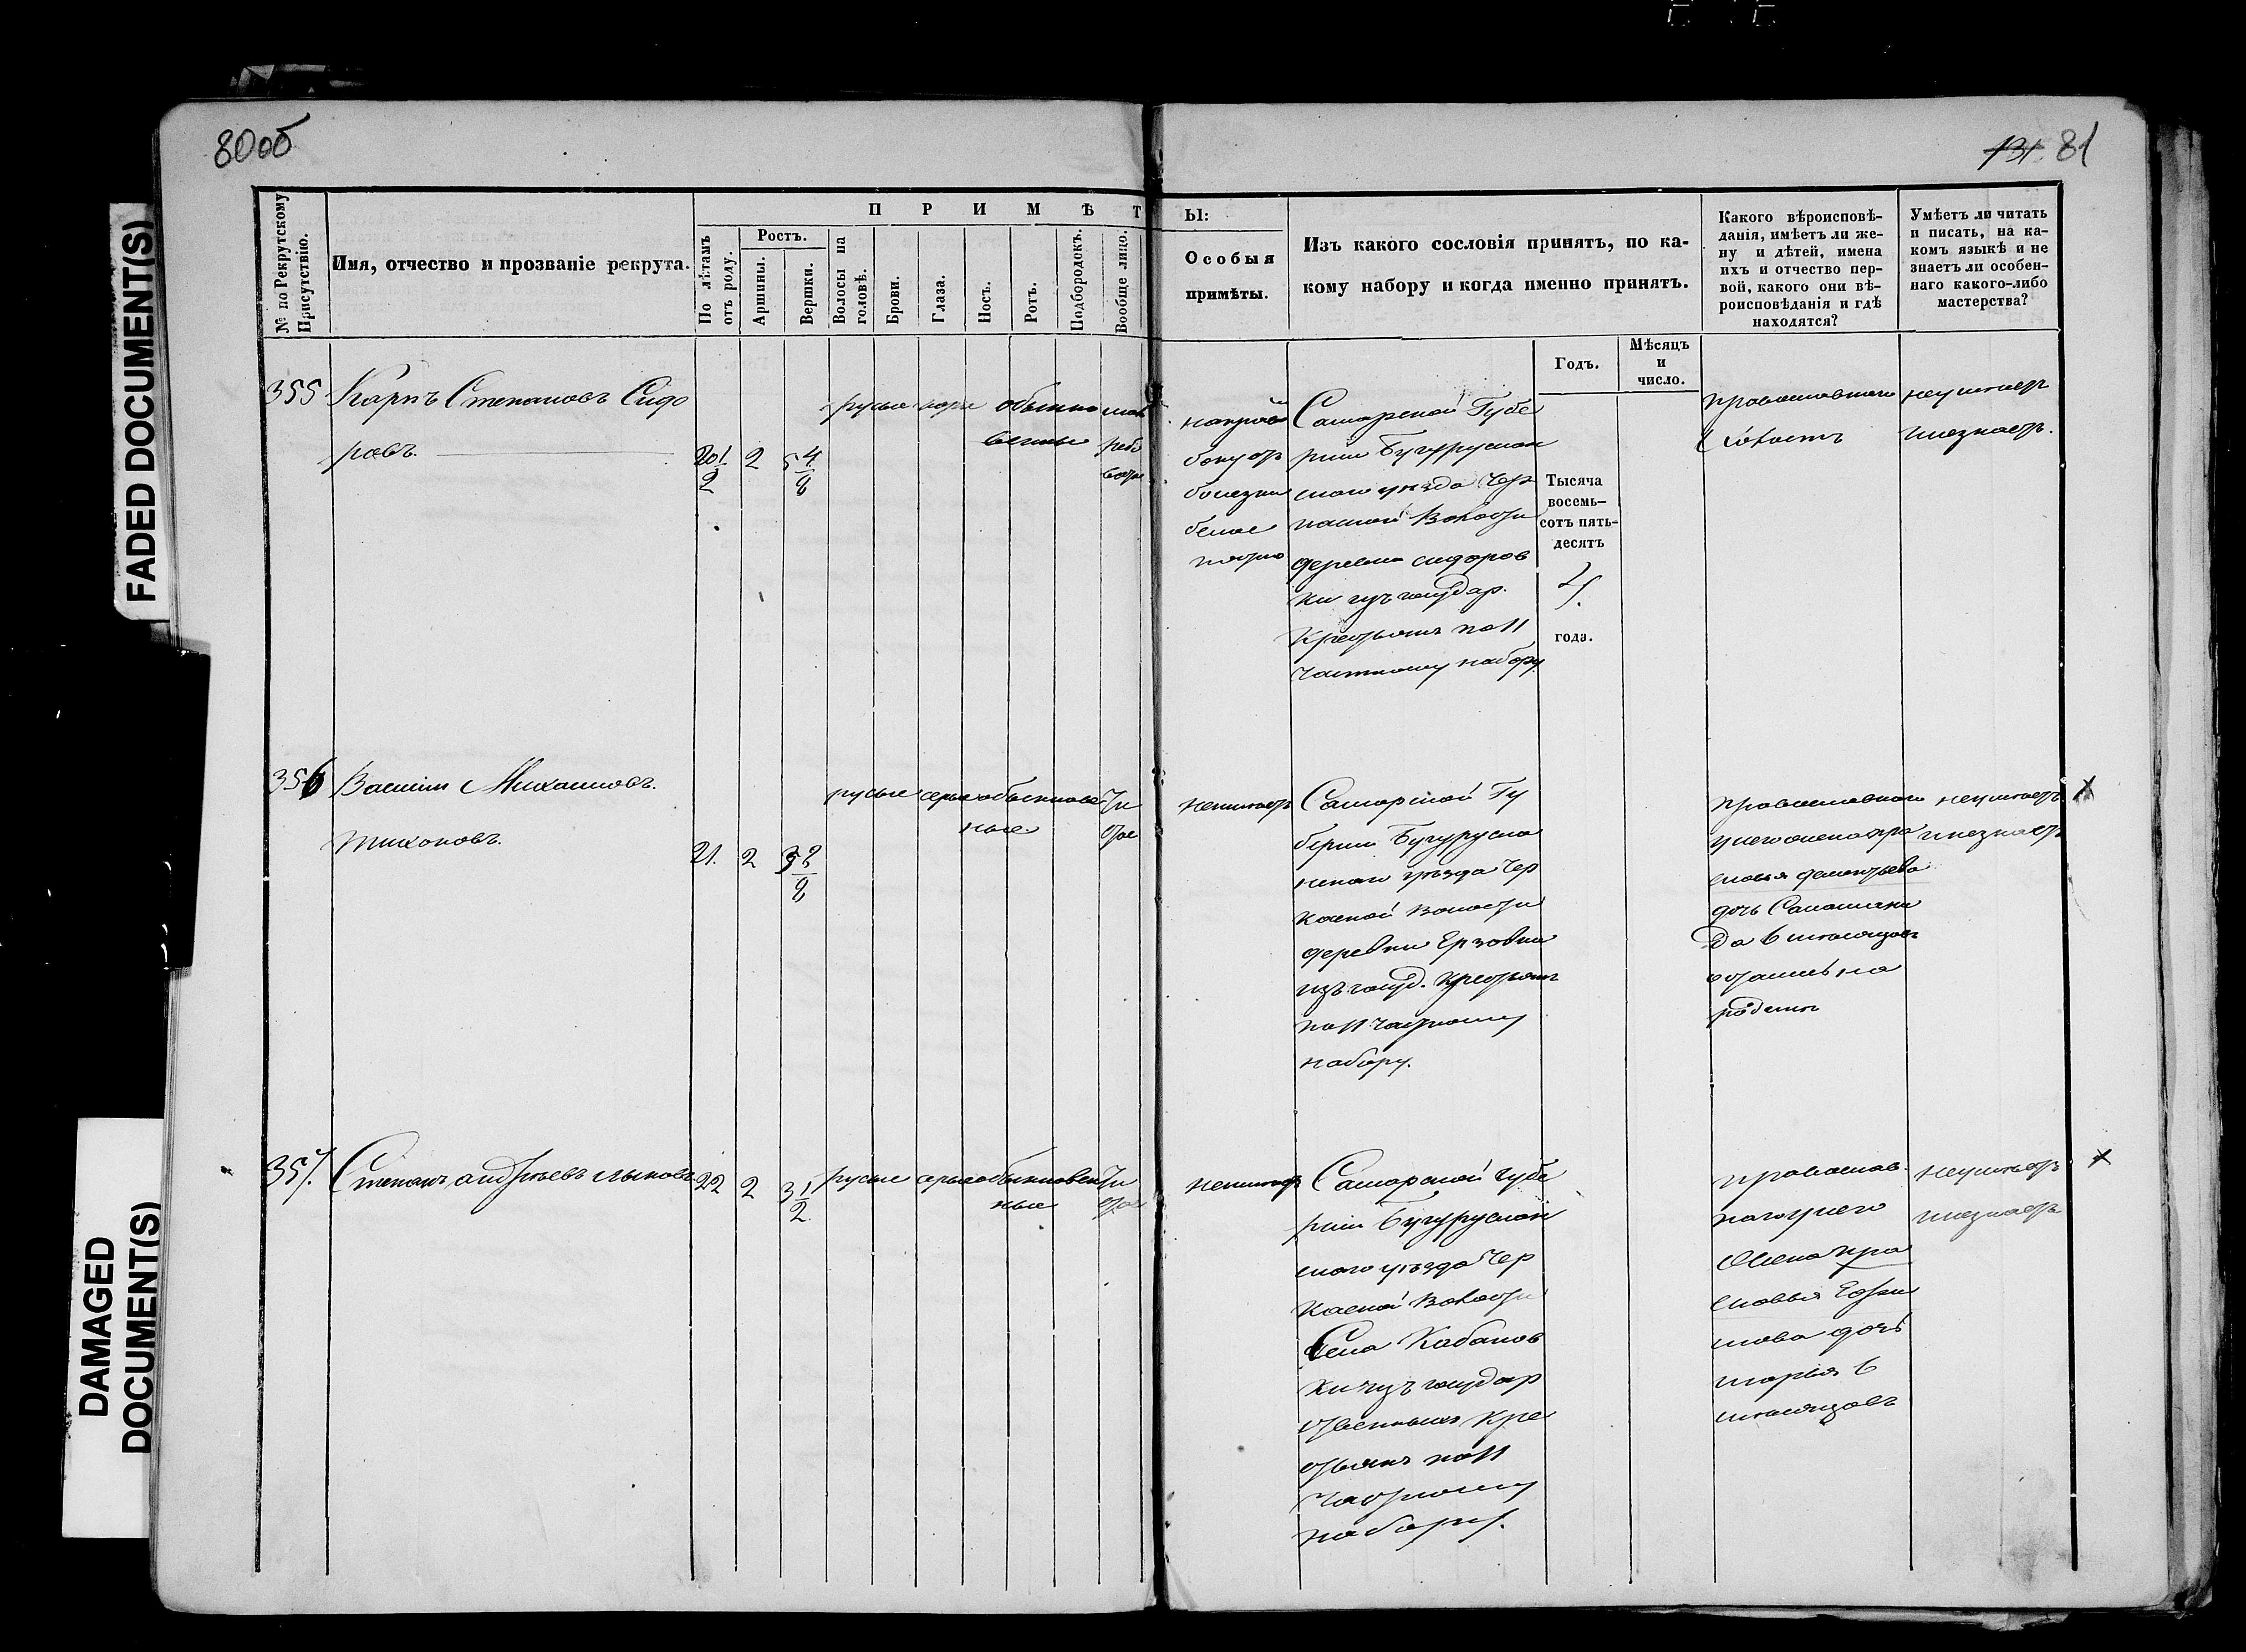 80об
131. 81
FADED DOCUMENT(S)
DAMAGED
DOCUMENT(S)
№ по Рекрутскому
Присутствію.
Имя, отчество и прозваніе рекрута.
П Р И М Ѣ Т
Ы:
По лѣтамъ
отъ роду.
Ростъ.
Аршины.
Вершки.
Волосы на
головѣ.
Брови.
Глаза.
Носъ.
Ротъ.
Подбородокъ.
Вообще лицо.
Особыя
примѣты.
Изъ какого сословія принятъ, по ка-
кому набору и когда именно принятъ.
Годъ.
Мѣсяцъ
и
число.
Какого вѣроисповѣ-
данія, имѣетъ ли же-
ну и дѣтей, имена
ихъ и отчество пер-
вой, какого они вѣ-
роисповѣданія и гдѣ
находятся?
Умѣетъ ли читать
и писать, на ка-
комъ языкѣ и не
знаетъ ли особен-
наго какого-либо
мастерства?
355 Карпъ Степановъ Сидо
ровъ.
20 1/2 2 5 4/8
русые карие обыкно
венные
рябо
ватое
боку отъ
болезни
белое
пятно
Самарской Губе
рніи Бугуруслан
скаго уѣзда Чер
каской Волости
деревни Сидоров
ки изъ государ.
Крестьянъ по 11
Частному набору
Тысяча
восемь-
сотъ пять-
десятъ
4.
года.
православнаго
холостъ
неумѣетъ
и незнаетъ.
356 Василій Михаиловъ
Тихоновъ.
21. 2 3 8
русые серые обыкновен
ные
Чи
стое
неимѣетъ
Самарской Гу
берніи Бугурусла
нскаго уѣзда Чер
каской Волости
деревни Ерзовки
изъ госуд. Крестьянъ
по 11 Частному
набору.
православнаго
у него жена Пра
сковья Дементьева
дочь Саломани
да 6 мѣсяцовъ
остались на
родинѣ
неумѣетъ
и незнаетъ
X
357. Степанъ Андреевъ Лыковъ
22 2 3 1/2
русые серые обыкновен
ные
Чи
стое
неимѣетъ
Самарской губе
рніи Бугуруслан
скаго уѣзда Чер
каской Волости
Села Кабанов
ки изъ государ
ственныхъ Кре
стьянъ по 11
Частному
набору.
православ
наго у него
Жена Пра
сковья Ефи
мова дочь
Марья 6
мѣсяцовъ
неумѣетъ
и незнаетъ
X